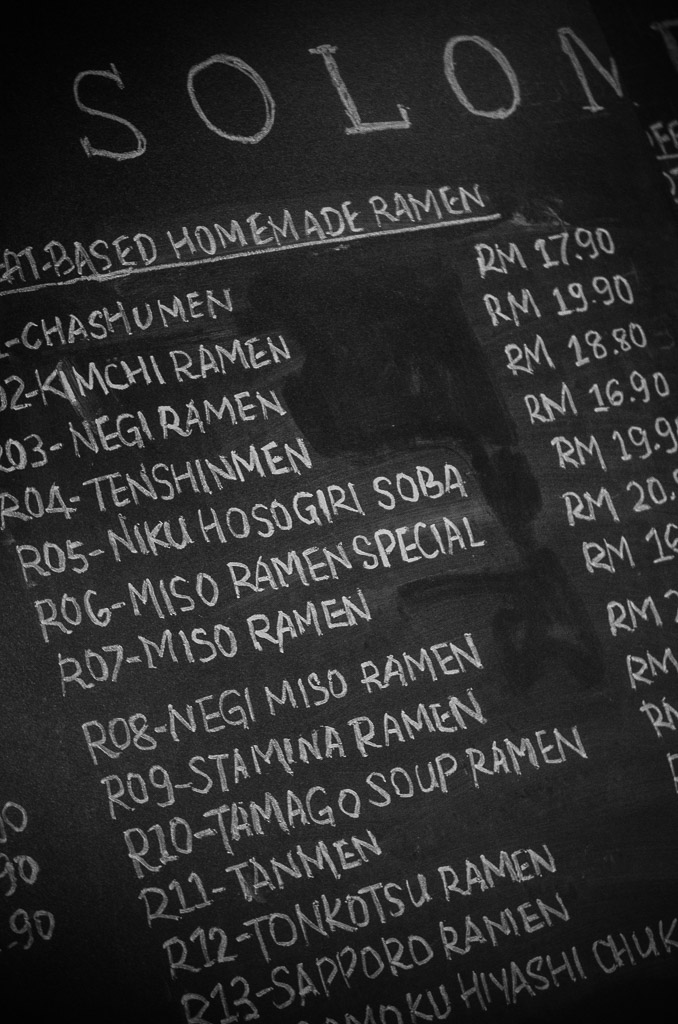 SOLON
EAT-BASED HOMEMADE RAMEN
1-CHASHUMEN RM 17.90
02-KIMCHI RAMEN RM 19.90
R03-NEGI RAMEN RM 18.80
R04-TENSHINMEN RM 16.90
R05-NIKU HOSOGIRI SOBA RM 19.9
R06-MISO RAMEN SPECIAL RM 20.
R07-MISO RAMEN RM 16
R08-NEGI MISO RAMEN RM
R09-STAMINA RAMEN RM
R10-TAMAGO SOUP RAMEN RM
R11-TANMEN
R12-TONKOTSU RAMEN
R13-SAPPORO RAMEN
MOKU HIYASHI CHUK
90
.90